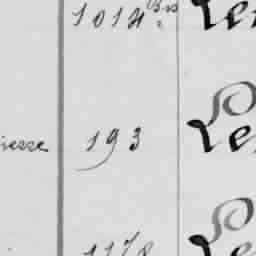 1014 Bis Le
iesse 193 Le
1178 Le